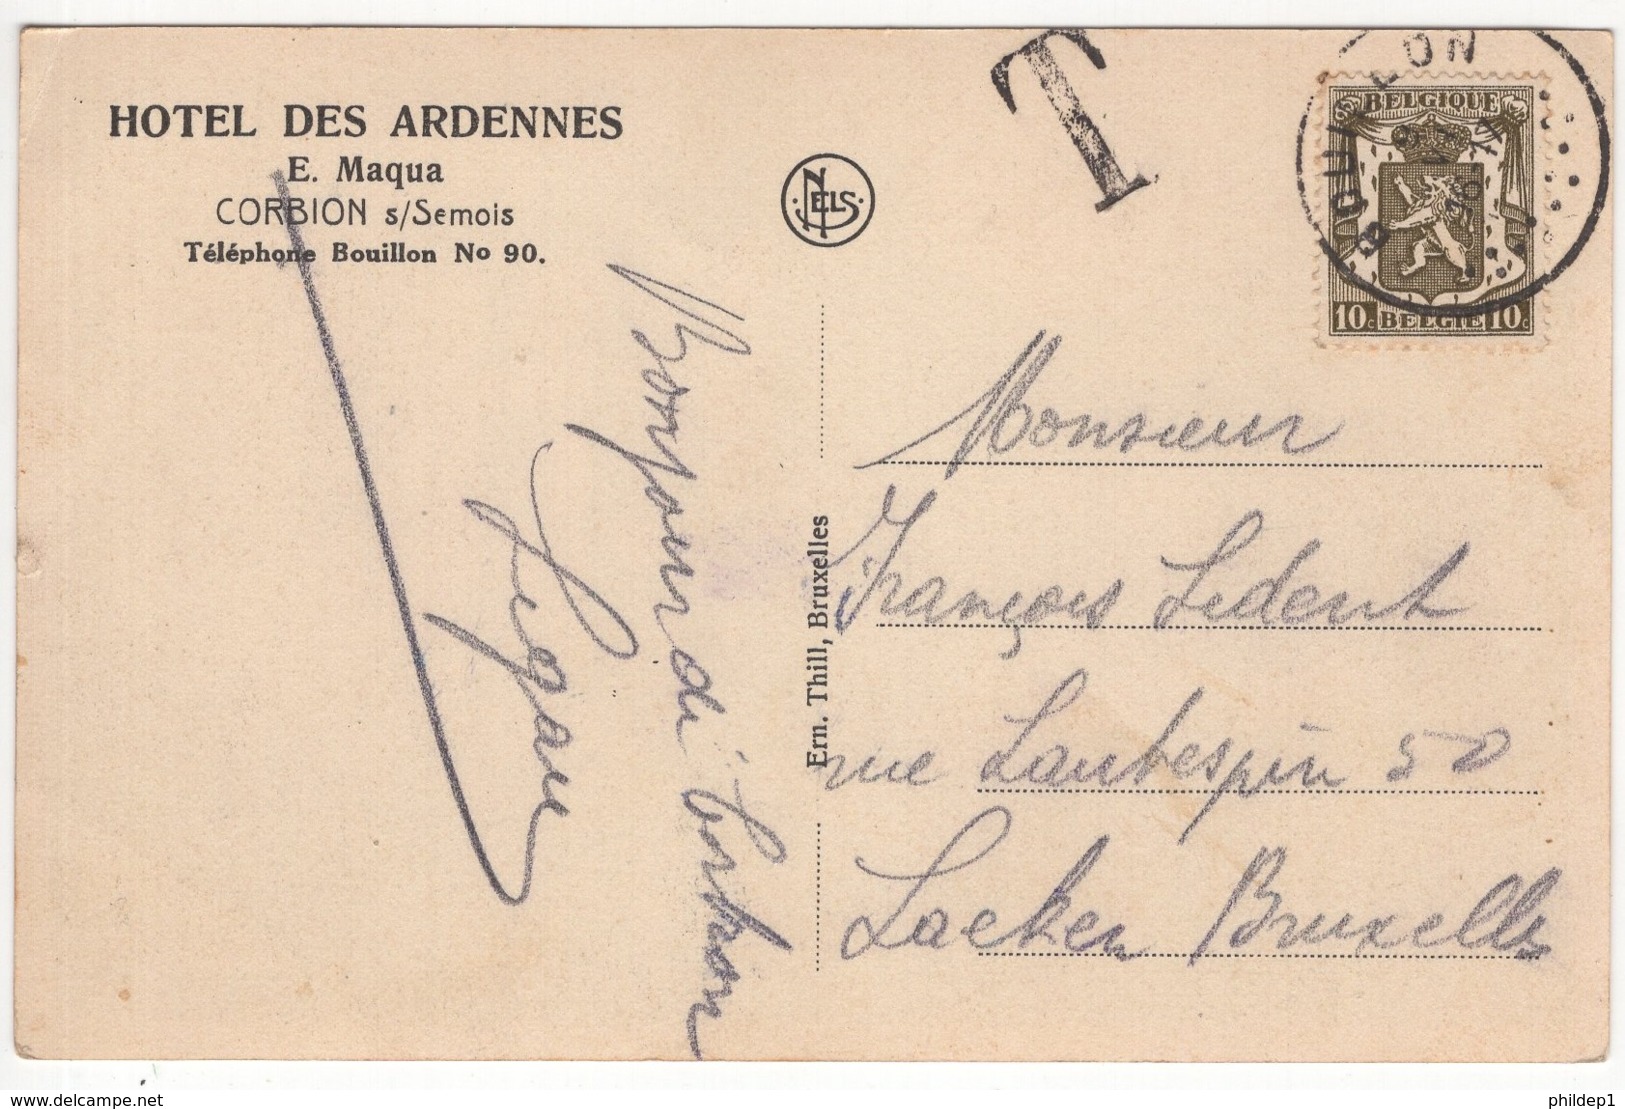 HOTEL DES ARDENNES
E. Maqua
CORBION s/Semois
Téléphone Bouillon No 90.
NELS
T
BOUILLON
BELGIQUE
10c BELGIË 10c
Bonjour de Corbion
Ern. Thill, Bruxelles
Monsieur
François Ledent
rue Lantespin 50
Laeken Bruxelles
www.delcampe.net
phildep1